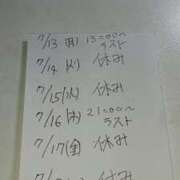 7/13 (月) 13:00〜
ラスト
7/14 (火) 休み
7/15 (水) 休み
7/16 (木) 21:00〜
ラスト
7/17 (金) 休み